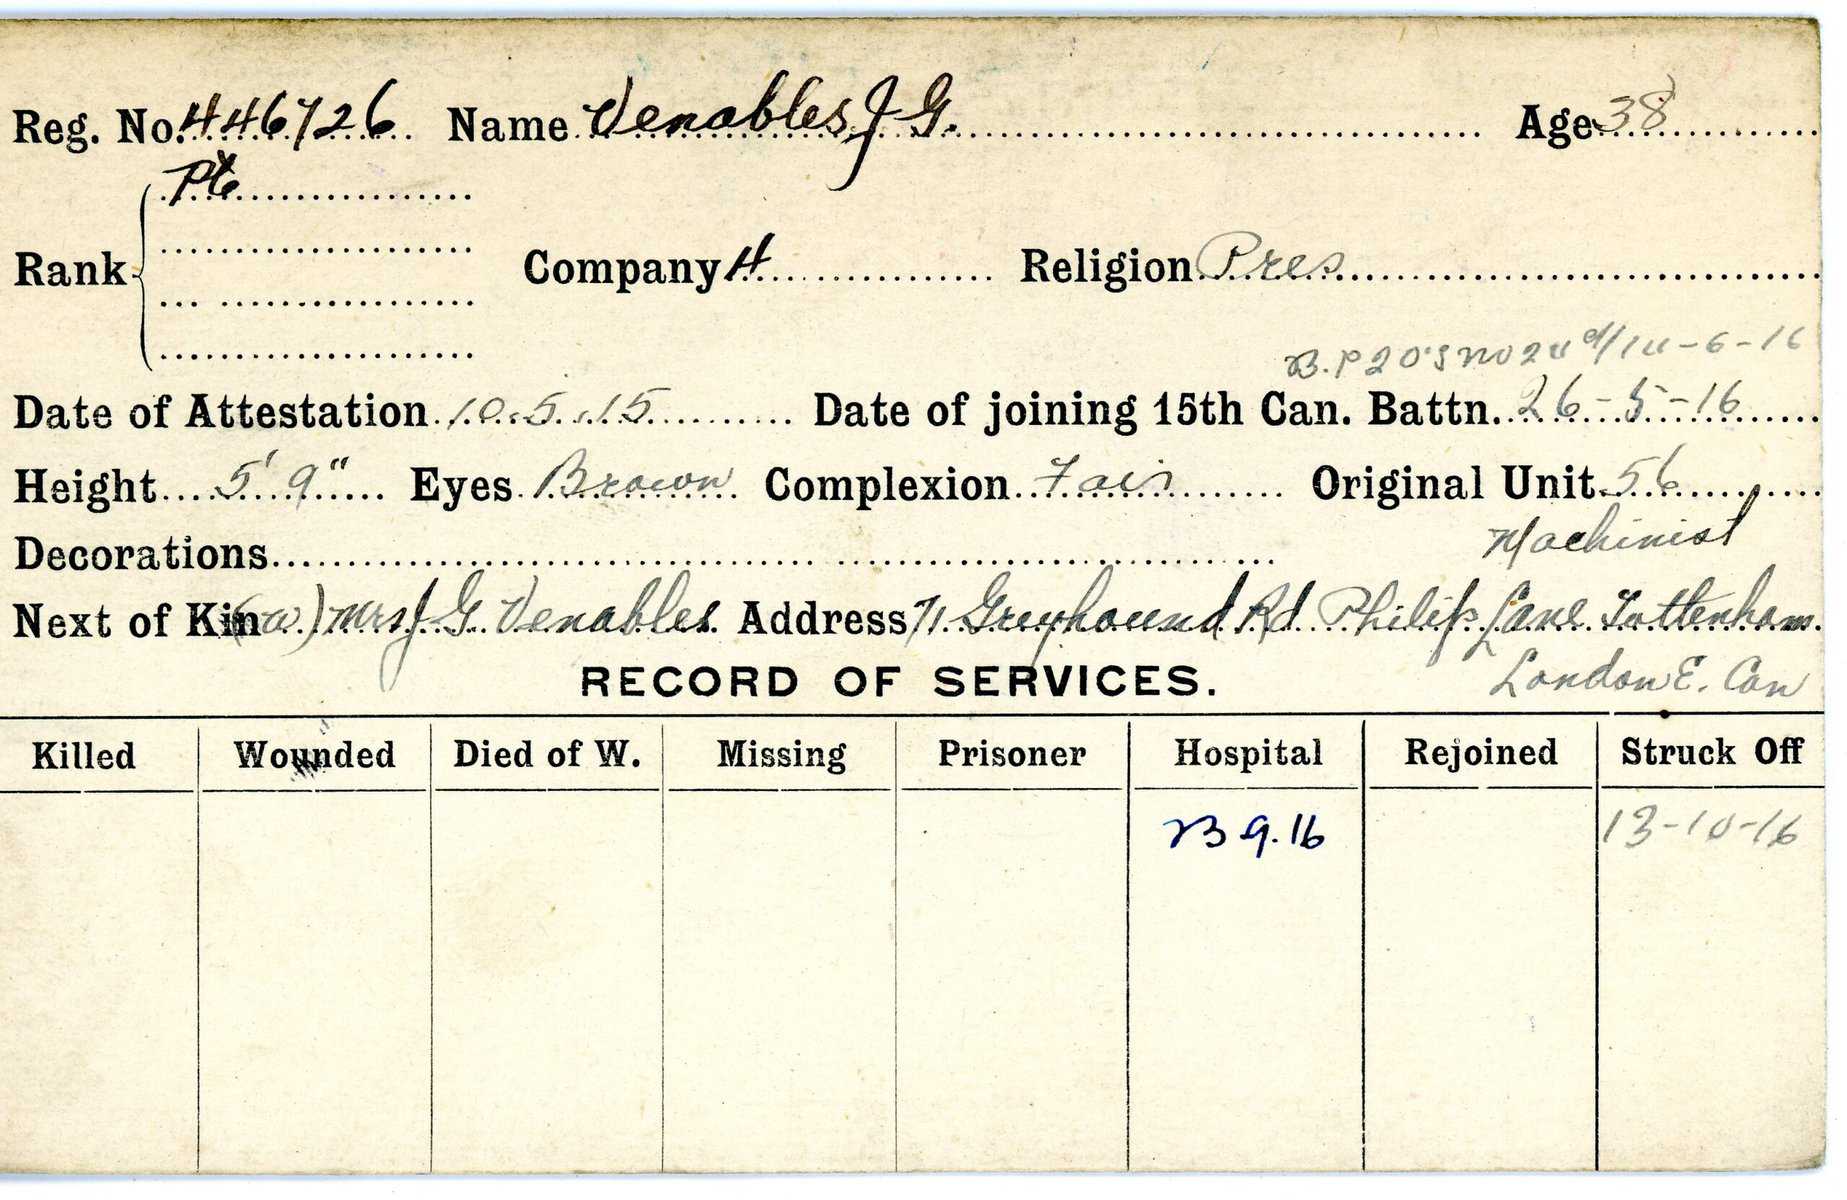 Reg. No. 446726 Name Venables J G. Age 38
Pte
Rank Company 4 Religion Pres
B.P20's No 24 d/14-6-16
Date of Attestation 10.5.15 Date of joining 15th Can. Battn. 26-5-16
Height 5' 9" Eyes Brown Complexion Fair Original Unit 56
Decorations Machinist
Next of Kin (w) Mrs J G Venables Address 71 Greyhound Rd Philip Lane Tottenham
RECORD OF SERVICES. London E. Can
Killed Wounded Died of W. Missing Prisoner Hospital Rejoined Struck Off
23 9.16 13-10-16